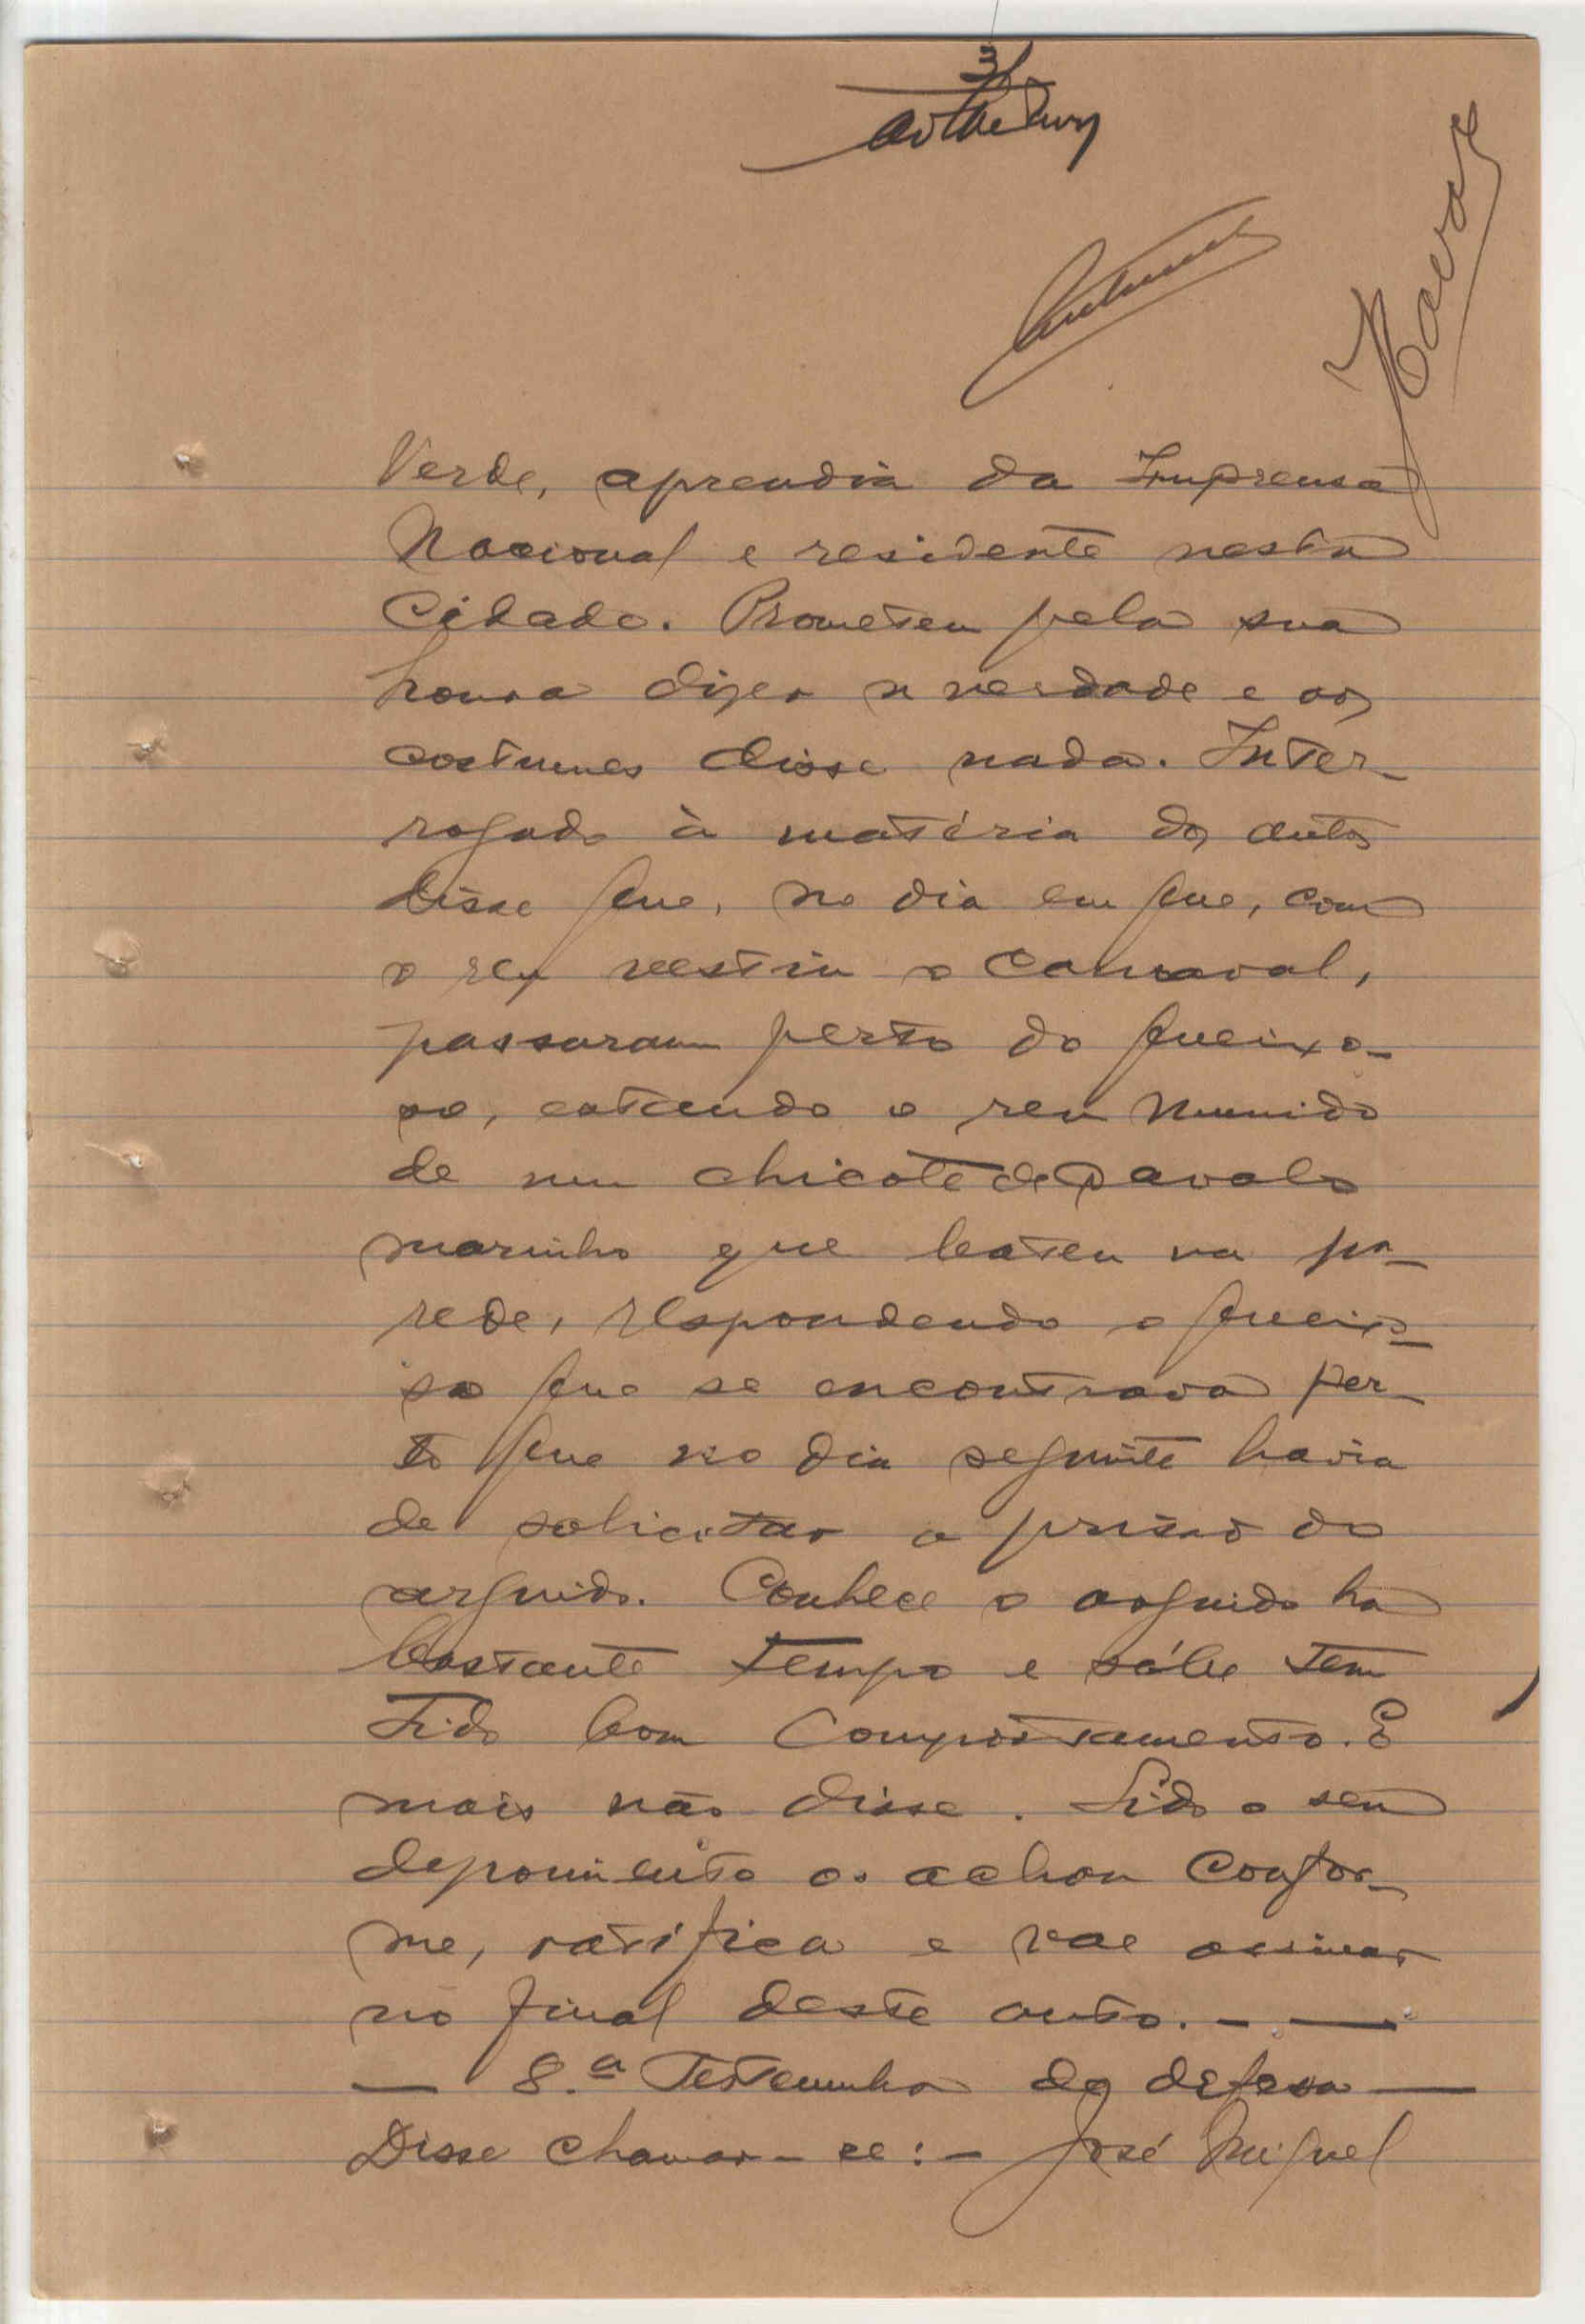 3
Antunes
Verde, aprendiz da Imprensa
Nacional e residente nesta
Cidade. Prometeu pela sua
honra dizer a verdade e aos
costumes disse nada. Inter-
rogado à matéria dos autos
disse que, no dia em que, com
o reu vestiu o Carnaval,
passaram perto do queixo-
so, estando o reu munido
de um chicote de cavalo
marinho que bateu na pa-
rede, respondendo o queixo-
so que se encontrava per-
to que no dia seguinte havia
de solicitar a prisão do
arguido. Conhece o arguido ha
bastante tempo e sábe tem
tido bom comportamento. E
mais não disse. Lido o seu
depoimento o achou confor-
me, ratifica e vae assinar
no final deste auto. - —
— 8.ª Testemunha de defesa —
Disse chamar-se: - José Miguel